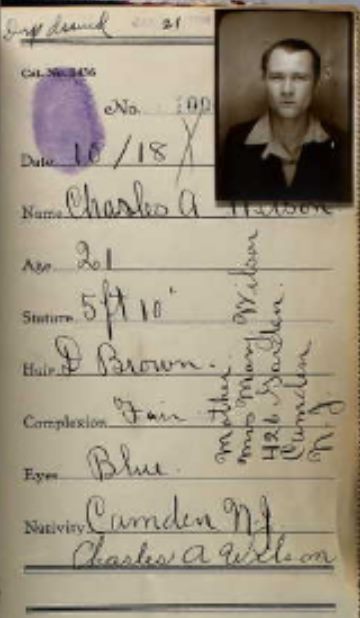 Dup Issued 21
Cat. No. 1456
No.
Date 10/18
Name Charles A Wilson
Age 21
Stature 5ft 10"
Hair D Brown.
Complexion Fair
Eyes Blue.
Nativity Camden N.J.
Charles A Wilson
Mother
Mrs Mary Wilson
426 Garden.
Camden
N.J.